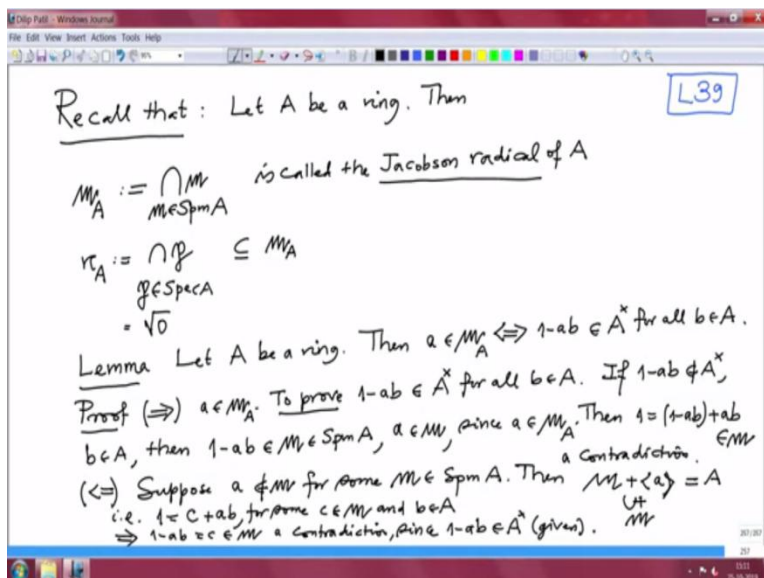 Dilip Patil - Windows Journal
File Edit View Insert Actions Tools Help
L39
Recall that : Let A be a ring. Then
𝔪_A := ⋂ 𝔪 is called the Jacobson radical of A
𝔪∈Spm A
𝔫_A := ⋂ 𝔭 ⊆ 𝔪_A
𝔭∈Spec A
= √0
Lemma Let A be a ring. Then a ∈ 𝔪_A ⟺ 1-ab ∈ A^× for all b∈A.
Proof (⇒) a∈𝔪_A. To prove 1-ab ∈ A^× for all b∈A. If 1-ab ∉ A^×,
b∈A, then 1-ab ∈ 𝔪 ∈ Spm A, a∈𝔪, since a∈𝔪_A. Then 1=(1-ab)+ab ∈𝔪
a contradiction.
(⇐) Suppose a ∉ 𝔪 for some 𝔪 ∈ Spm A. Then 𝔪 + ⟨a⟩ = A
i.e. 1 = c + ab, for some c∈𝔪 and b∈A
⇒ 1-ab = c ∈ 𝔪 a contradiction, since 1-ab ∈ A^× (given).
𝔪
257/257
257
15:11